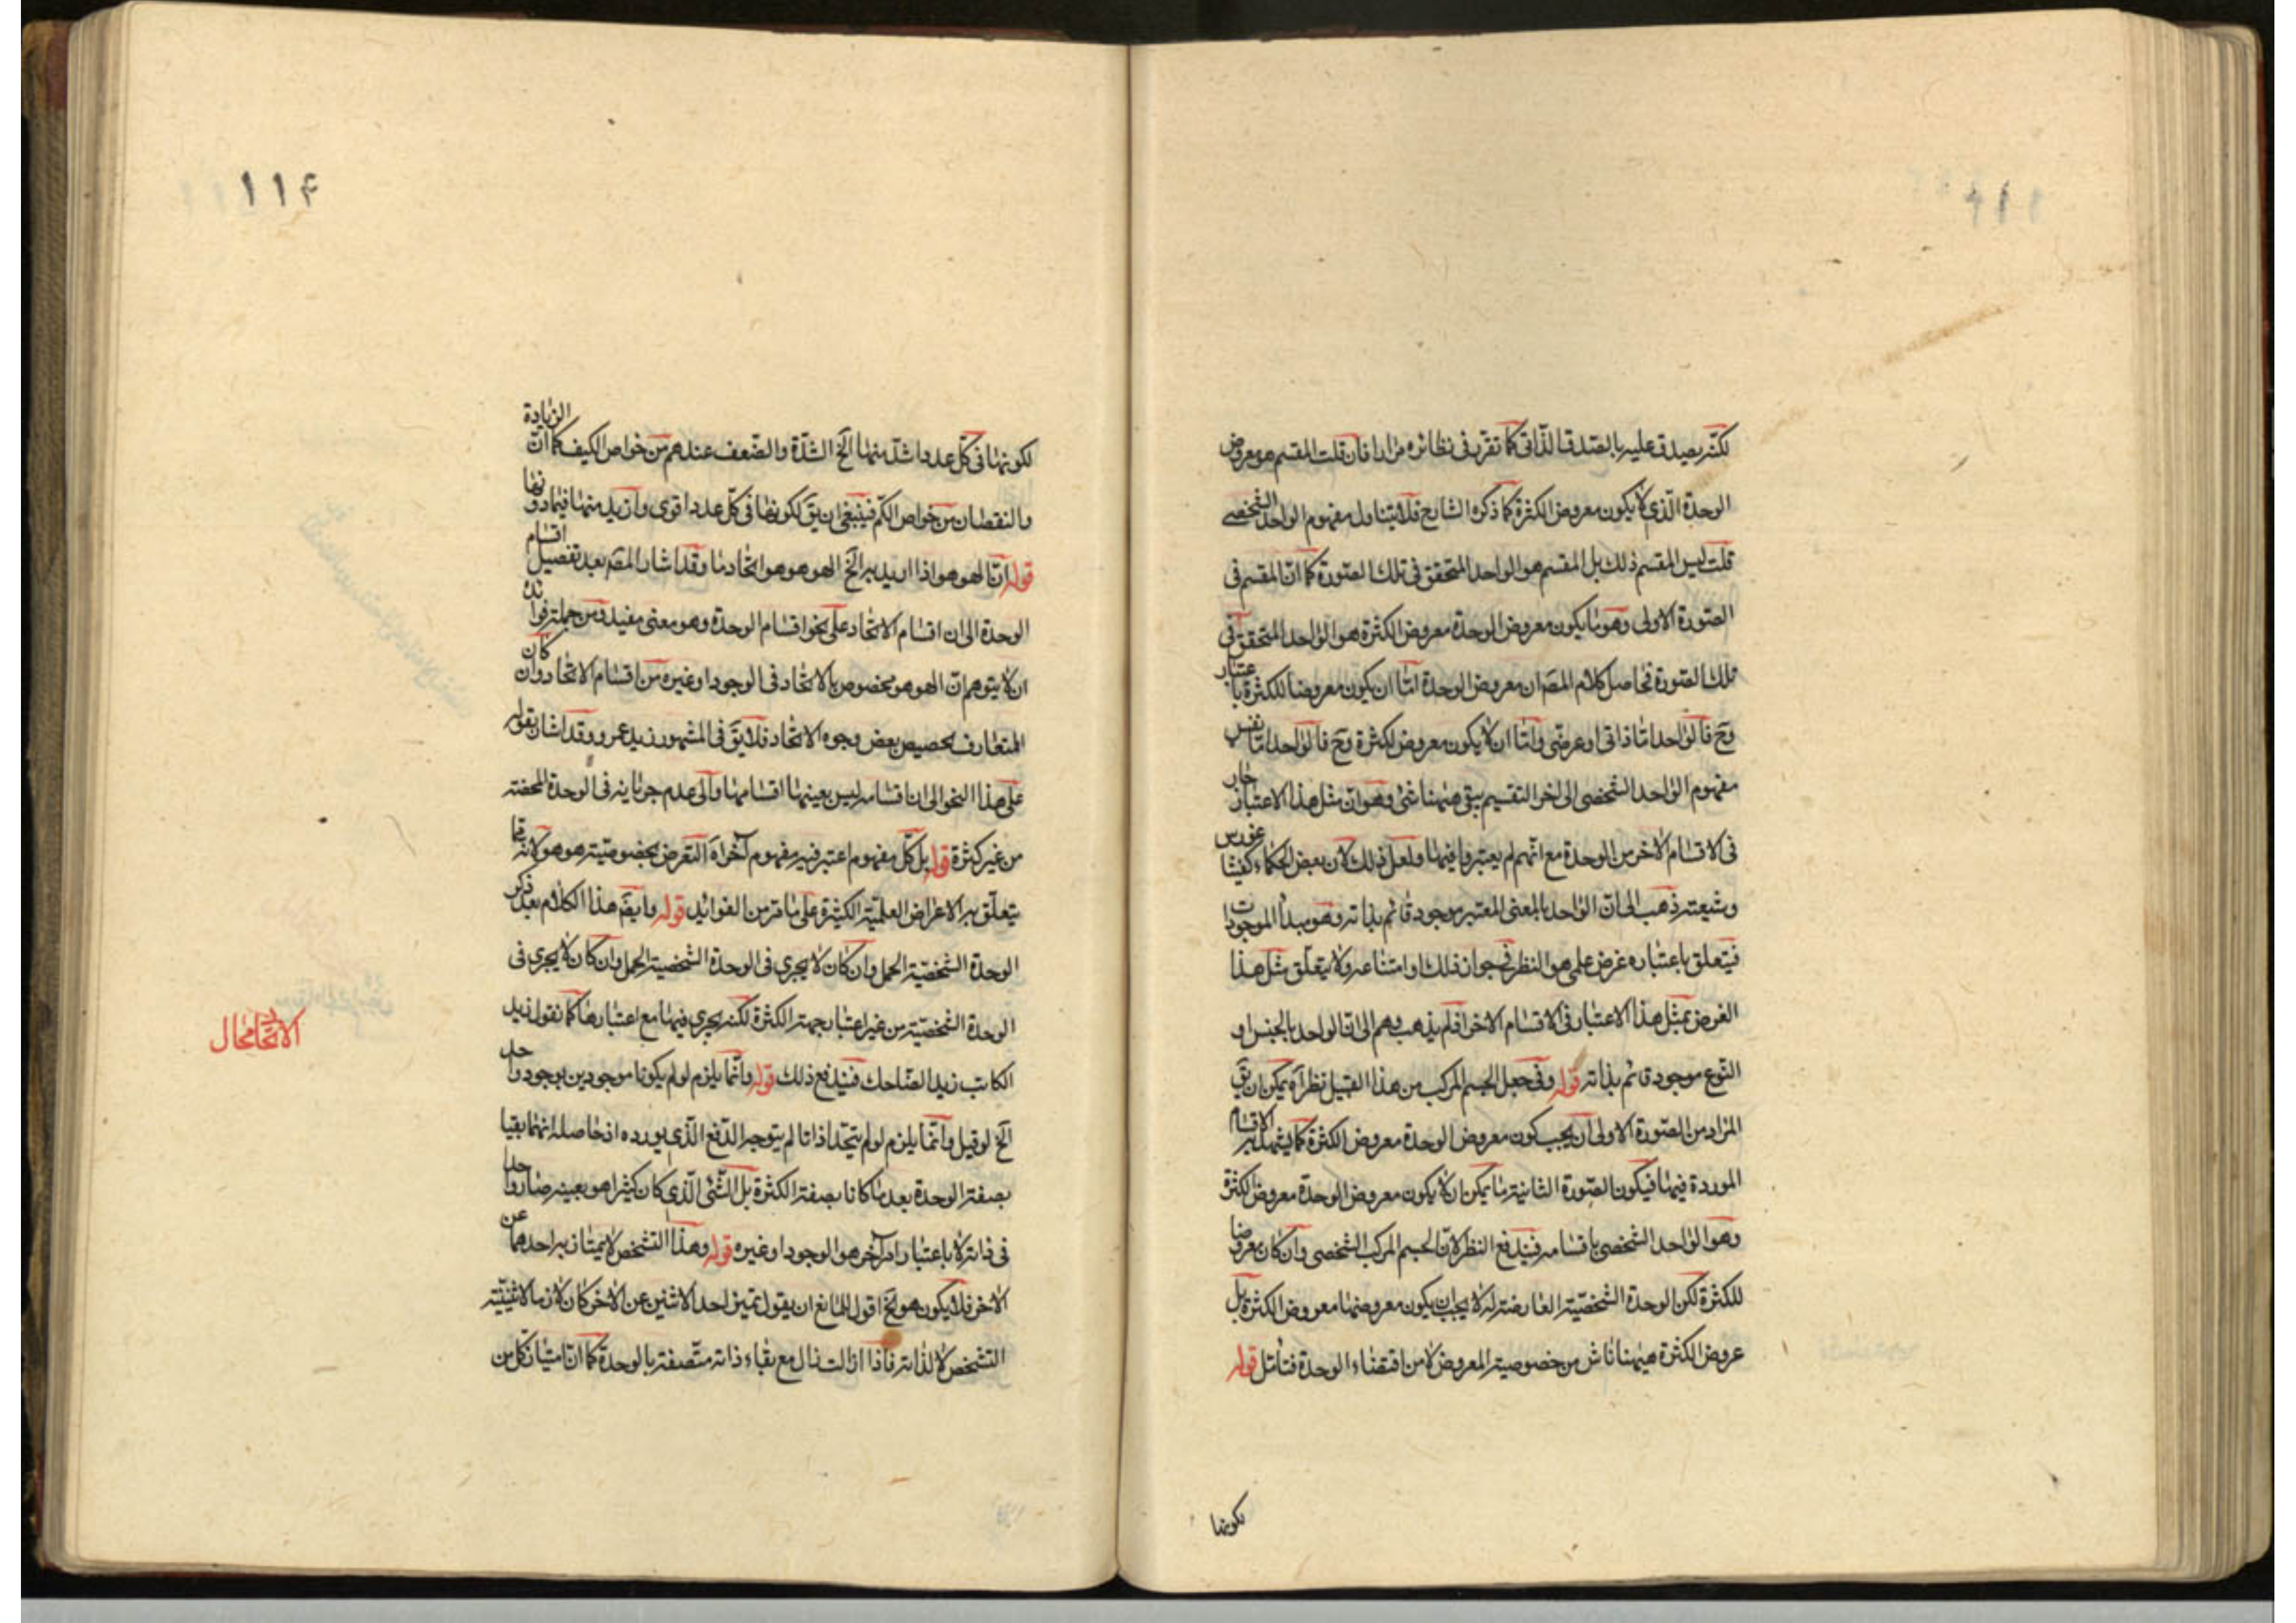 لكنّه يصدق عليه بالصدق الذّاتى كما تقرّر فى نظائره مرارا فان قلت المقسم هو معروض
الوحدة الّذى لا يكون معروض الكثرة كما ذكره الشارح فلا يتناول مفهوم الواحد الشخصى
قلت ليس المقسم ذلك بل المقسم هو الواحد المتحقق فى تلك الصّورة كما انّ المقسم فى
الصّورة الاولى وهو ما يكون معروض الوحدة معروض الكثرة هو الواحد المتحقق فى
تلك الصّورة فحاصل كلام المصّ ان معروض الوحدة امّا ان يكون معروضا للكثرة باعتبار
وح فالواحد امّا ذاتى او عرضى وامّا ان لا يكون معروض الكثرة وح فالواحد امّا نفس
مفهوم الواحد الشخصى الى اخر التقسيم يبقى هيهنا شئ وهو ان مثل هذا الاعتبار جار
فى الاقسام الاخر من الوحدة مع انّهم لم يعتبروا فيها ولعل ذلك لان بعض الحكماء كفيثاغورس
وشيعته ذهب الى انّ الواحد بالمعنى المعتبر موجود قائم بذاته وهو مبدأ الموجودات
فيتعلق باعتباره غرض علمى هو النظر فى جواز ذلك او امتناعه ولا يتعلّق مثل هذا
الغرض بمثل هذا الاعتبار فى الاقسام الاخر اذ لم يذهب وهم الى انّ الواحد بالجنس او
النّوع موجود قائم بذاته قوله وفى جعل الجسم المركب من هذا القبيل نظر آه يمكن ان يقّ
المراد من الصّورة الاولى ان يجب كون معروض الوحدة معروض الكثرة كما يشهد به الاقسام
الموردة فيها فيكون الصّورة الثانية ما يمكن ان لا يكون معروض الوحدة معروض الكثرة
وهو الواحد الشخصى باقسامه فيندفع النظر لانّ الجسم المركب الشخصى وان كان معروضا
للكثرة لكن الوحدة الشخصيّة العارضة له لا يجب ان يكون معروضها معروض الكثرة بل
عروض الكثرة هيهنا ناش من خصوصية المعروض لا من اقتضاء الوحدة فتأمّل قوله
لكونها
١١۴
لكونها فى كلّ عدد اشدّ منها الخ الشدّة والضّعف عندهم من خواص الكيف كما انّ الزيادة
والنقصان من خواص الكم فينبغى ان يقّ لكونها فى كلّ عدد اقوى وازيد منها فيما دونها
قوله انّ الهو هو اذا اريد به الخ الهو هو هو اتحاد ما وقد اشار المصّ بعد تفصيل اقسام
الوحدة الى ان اقسام الاتحاد على نحو اقسام الوحدة وهو معنى مفيد ومن جملة فوائده
ان لا يتوهم انّ الهو هو مخصوص بالاتحاد فى الوجود او غيره من اقسام الاتحاد وان كان
المتعارف تخصيص بعض وجوه الاتحاد فلا يقّ فى المشهور زيد عمرو وقد اشار بقوله
على هذا النحو الى ان اقسامه ليس بعينها اقسامها والى عدم جريانه فى الوحدة المحضة
من غير كثرة قوله بل كلّ مفهوم اعتبر فيه مفهوم آخر آه التعرض بخصوصيّة هو هو لانه قما
يتعلّق به الاغراض العلميّة الكثيرة على ما مر من الفوائد قوله وايضّ هذا الكلام بعد ذكر
الوحدة الشخصيّة الحمل وان كان لا يجرى فى الوحدة الشخصية الحمل وان كان لا يجرى فى
الوحدة الشخصيّة من غير اعتبار جهة الكثرة لكنه يجرى فيها مع اعتبارها كما نقول زيد
الكاتب زيد الضّاحك فيندفع ذلك قوله وانّما يلزم لو لم يكونا موجودين بوجود واحد
الخ لو قيل وانّما يلزم لو لم يتّحدا ذاتا لم يتوجه الدّفع الّذى يورده اذ حاصله انهما بقيا
بصفة الوحدة بعد ما كانا بصفة الكثرة بل الشّئ الّذى كان كثيرا هو بعينه صار واحدا
فى ذاته لا باعتبار امر آخر هو الوجود او غيره قوله وهذا التشخص لا يمتاز به احدهما عن
الاخر فلا يكون هو الخ اقول للمانع ان يقول تميز احد الاثنين عن الاخر كان لازما لاثنينيّة
التشخص لا لذاته فاذا ازالت زال مع بقاء ذاته متّصفة بالوحدة كما انّ امتياز كل من
الاتّحاد محال